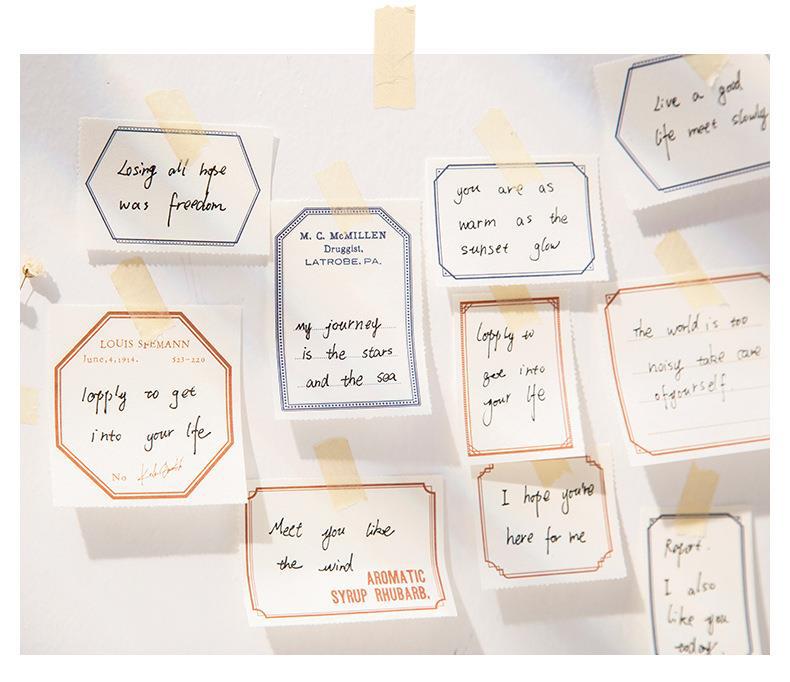 Losing all hope
was freedom
M. C. McMILLEN
Druggist,
LATROBE, PA.
my journey
is the stars
and the sea
you are as
warm as the
sunset glow
Live a good
life meet slowly
LOUIS SEEMANN
June, 4, 1914. 523-220
lapply to get
into your life
No
lapply to
get into
your life
The world is too
noisy take care
ofyourself.
Meet you like
the wind
AROMATIC
SYRUP RHUBARB.
I hope you're
here for me
Report.
I also
like you
today.